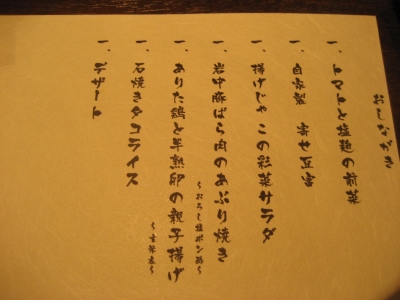 おしながき
一、トマトと塩麹の前菜
一、自家製 寄せ豆富
一、揚げじゃこの彩菜サラダ
一、岩中豚ばら肉のあぶり焼き
~おろし塩ポン酢~
一、ありた鶏と半熟卵の親子揚げ
一、石焼きタコライス
一、デザート